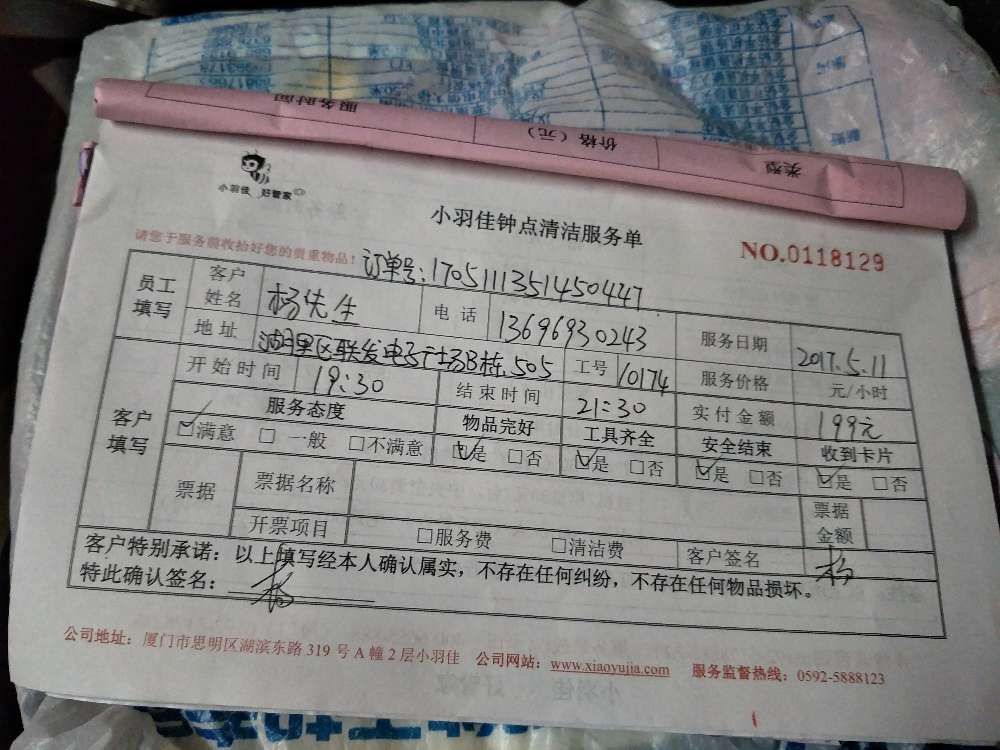 服务时间 价格（元） 类型
小羽佳 好管家
小羽佳钟点清洁服务单
NO.0118129
请您于服务前收拾好您的贵重物品！
订单号:1705111351450447
员工填写 客户姓名 杨先生 电话 13696930243 服务日期 2017.5.11
地址 湖里区联发电子广场B栋.505 工号 10174 服务价格 元/小时
客户填写 开始时间 19:30 结束时间 21:30 实付金额 199元
服务态度 物品完好 工具齐全 安全结束 收到卡片
☑满意 □ 一般 □不满意 ☑是 □否 ☑是 □否 ☑是 □否 ☑是 □否
票据 票据名称 票据金额
开票项目 □服务费 □清洁费 客户签名 杨
客户特别承诺：以上填写经本人确认属实，不存在任何纠纷，不存在任何物品损坏。
特此确认签名： 杨
公司地址：厦门市思明区湖滨东路 319 号 A 幢 2 层小羽佳 公司网站：www.xiaoyujia.com 服务监督热线：0592-5888123